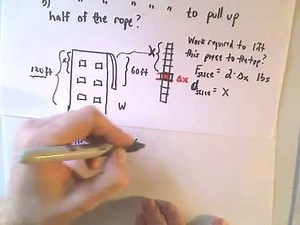 b) " " " " " to pull up
half of the rope?
Work required to lift
this piece to the top?
F slice = 2·Δx lbs
d slice = x
x
120 ft
x
60 ft
Δx
W